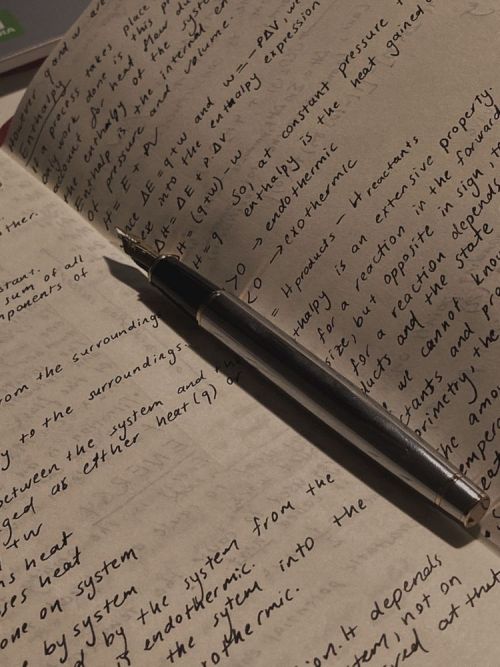 ther.
stant.
sum of all
ponents of
rom the surroundings
y to the surroundings.
between the system and the
ged as either heat(q) or
+w
s heat
ses heat
one on system
e by system
d by the system from the
endothermic.
the sytem into the
othermic.
ion. It depends
tem, not on
ured at that
q and w are
Enthalpy
a process takes place
only work done is this p
account for heat flow du
the enthalpy of the
Enthalp is the internal en
pressure and volume.
H = E + PV
ΔE = q+w and w = -PΔV, w
into the enthalpy expression
ΔH = ΔE + P.ΔV
H = (q+w) - w
H = q So, at constant pressure t
enthalpy is the heat gained o
>0 → endothermic
<0 → exothermic
= H products - H reactants
thalpy is an extensive property.
for a reaction in the forward
size, but opposite in sign to
for a reaction depends
ducts and the state
we cannot know
ctants and pro
orimetry, the
the amo
temperat
heat